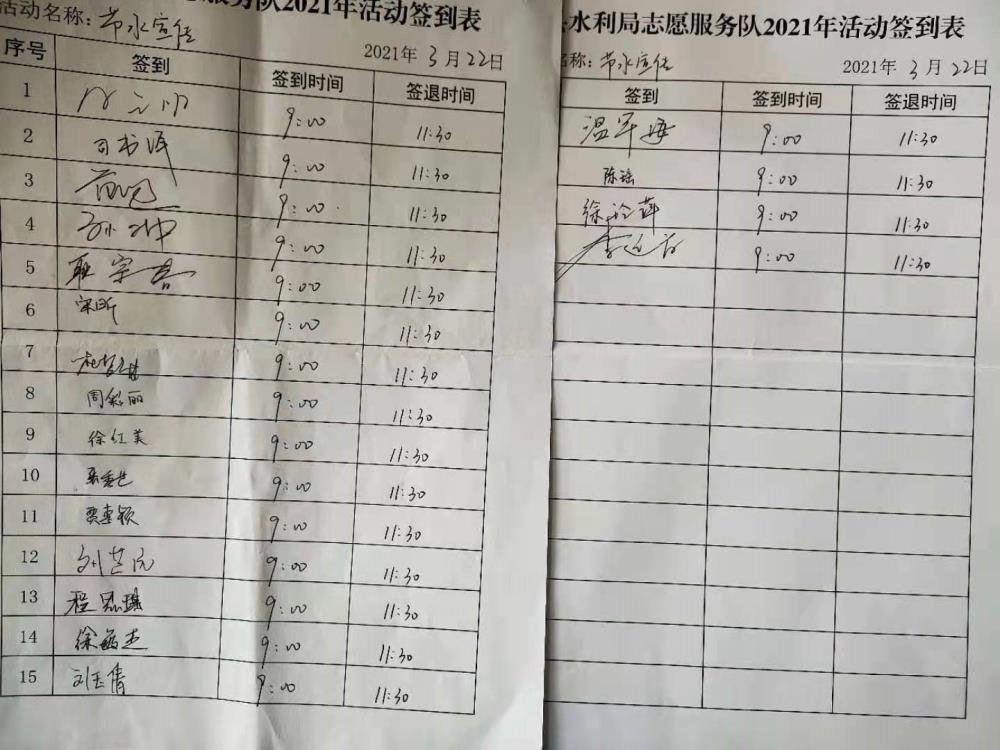 愿服务队2021年活动签到表
活动名称：节水宣传
2021年 3月 22日
序号 签到 签到时间 签退时间
1 9:00 11:30
2 司书泽 9:00 11:30
3 9:00 11:30
4 孙冲 9:00 11:30
5 耿宗喜 9:00 11:30
6 宋昕 9:00 11:30
7 9:00 11:30
8 周彩丽 9:00 11:30
9 徐红美 9:00 11:30
10 9:00 11:30
11 贾惠颖 9:00 11:30
12 9:00 11:30
13 程思琪 9:00 11:30
14 徐敏杰 9:00 11:30
15 刘玉倩 9:00 11:30
水利局志愿服务队2021年活动签到表
名称：节水宣传
2021年 3月 22日
签到 签到时间 签退时间
温翠梅 9:00 11:30
陈瑶 9:00 11:30
徐玲萍 9:00 11:30
9:00 11:30